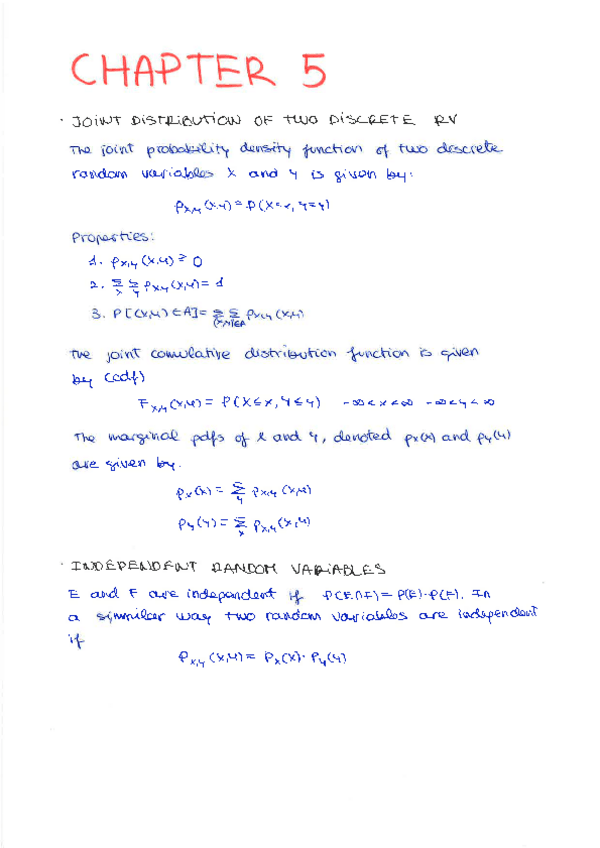 CHAPTER 5
· JOINT DISTRIBUTION OF TWO DISCRETE RV
The joint probability density function of two discrete
random variables X and Y is given by:
P_{X,Y}(x,y) = P(X=x, Y=y)
Properties:
1. P_{X,Y}(x,y) ≥ 0
2. Σ_x Σ_y P_{X,Y}(x,y) = 1
3. P[(X,Y) ∈ A] = Σ Σ_{(x,y)∈A} P_{X,Y}(x,y)
The joint comulative distribution function is given
by (cdf)
F_{X,Y}(x,y) = P(X≤x, Y≤y)   -∞<x<∞ -∞<y<∞
The marginal pdfs of X and Y, denoted p_X(x) and p_Y(y)
are given by.
p_X(x) = Σ_y P_{X,Y}(x,y)
p_Y(y) = Σ_x P_{X,Y}(x,y)
· INDEPENDENT RANDOM VARIABLES
E and F are independent if P(E∩F) = P(E)·P(F). In
a simmilar way two random variables are independent
if
P_{X,Y}(x,y) = P_X(x)· P_Y(y)